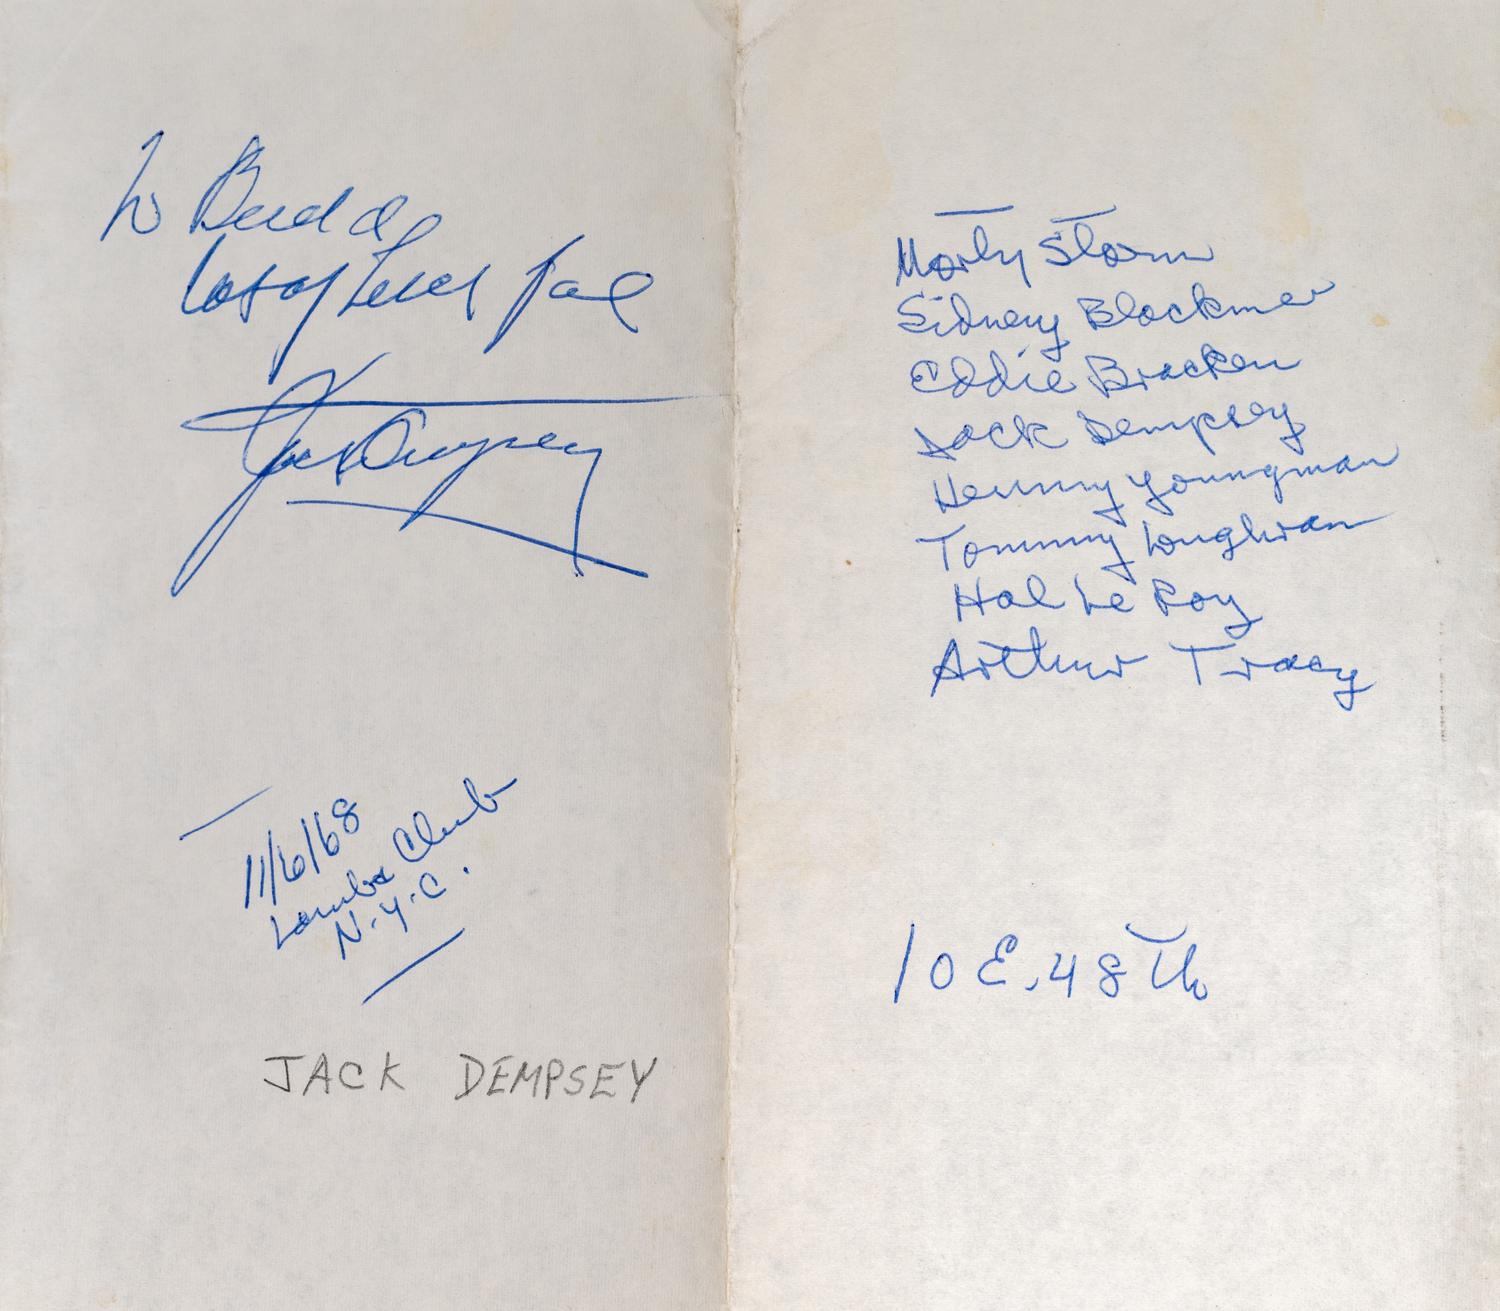 To Budd
Lots of Luck Pal
Jack Dempsey
11/6/68
Lambs Club
N.Y.C.
JACK DEMPSEY
Morty Storm
Sidney Blackmer
Eddie Bracken
Jack Dempsey
Henny Youngman
Tommy Loughran
Hal Le Roy
Arthur Tracy
10 E. 48Th